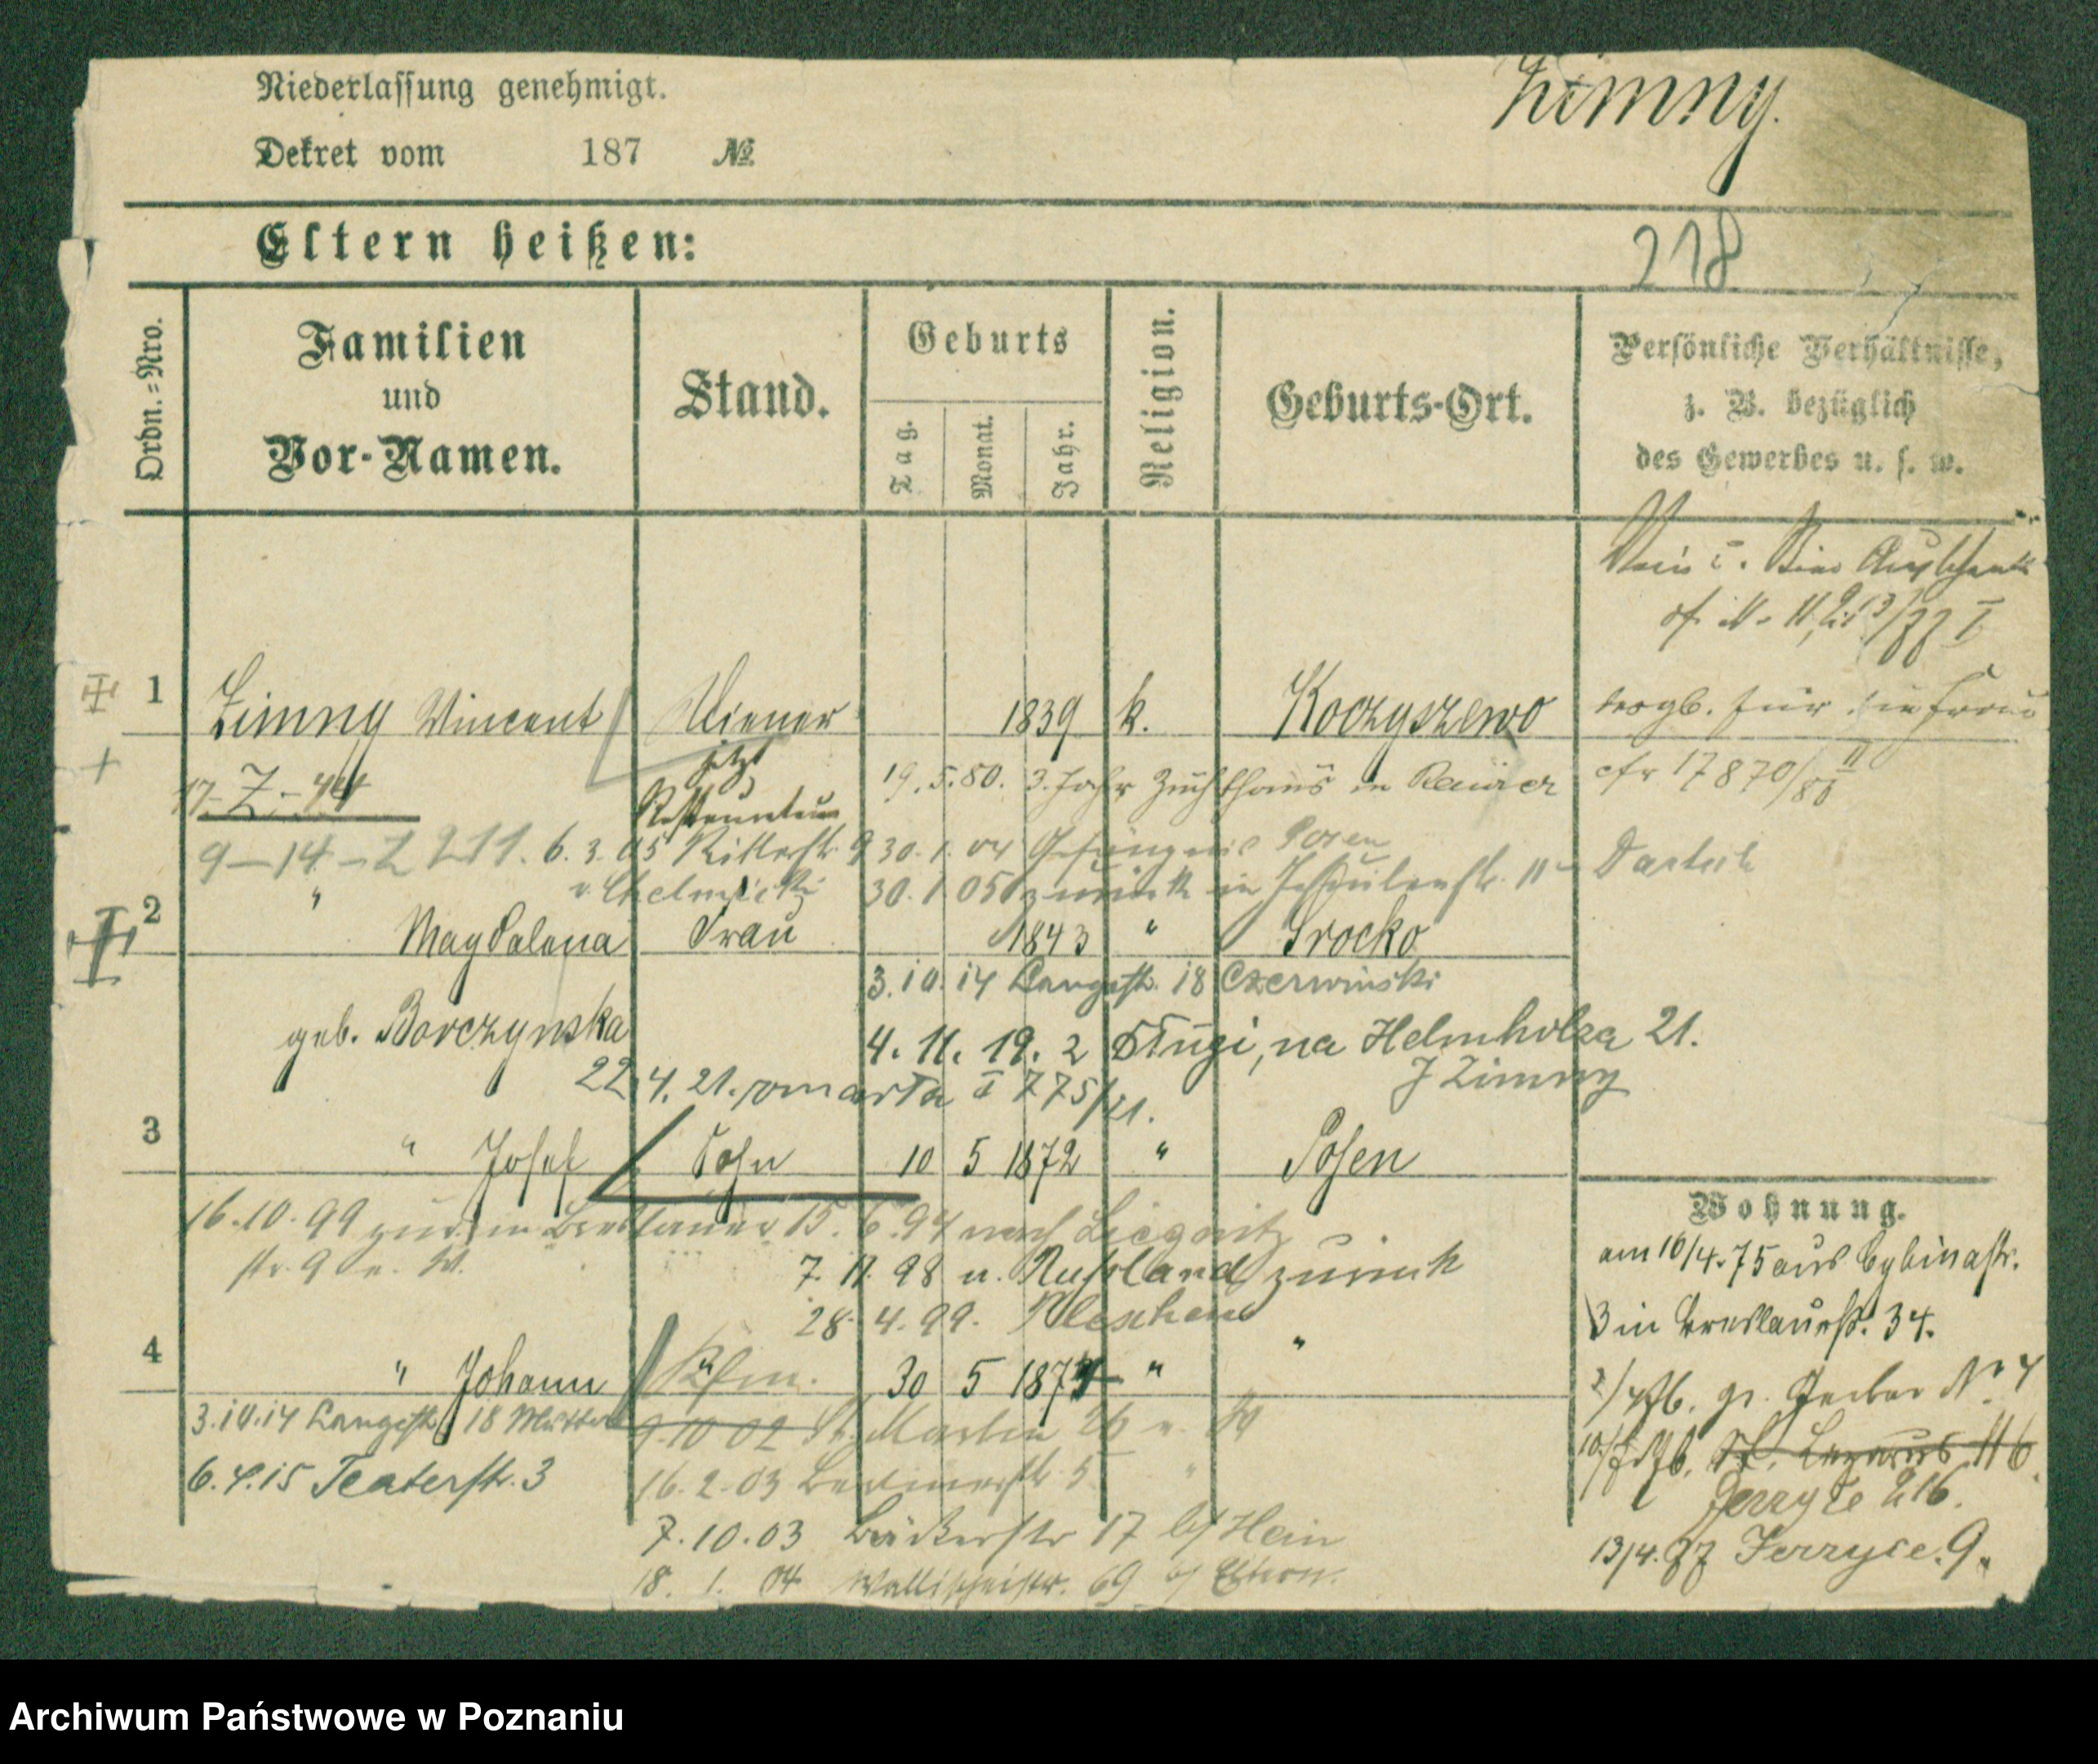 Niederlassung genehmigt.
Zimny.
Dekret vom 187 №
Eltern heißen:
218
Ordn.=Nro.
Familien
und
Vor-Namen.
Stand.
Geburts
Tag.
Monat.
Jahr.
Religion.
Geburts-Ort.
Persönliche Verhältnisse,
z. B. bezüglich
des Gewerbes u. s. w.
1 Zimny Vincent Diener 1839 k. Koczyszewo
jetzt
Restaurateur
19.5.80. 3 Jahr Zuchthaus in
cfr 17870/80 II
17-Z-44
9-14-Z 211. 6.3.05 Ritterstr. 9
v. Chelmicki
30.1.04 Gefängnis Posen
30.1.05 zurück in
2 " Magdalena Frau 1843 " Srocko
3.10.14 Langestr. 18 Czerwinski
geb. Borczynska
4.11.19. 2 Długi, na Helmholza 21.
J Zimny
22.4.21. zmarła I 775/21.
3 " Josef Sohn 10 5 1872 " Posen
16.10.99 zur. in Breslauer
str. 9 u. W.
15.6.94 nach Liegnitz
7.11.98 u. Russland zurück
28.4.99. Pleschen
4 " Johann Kfm. 30 5 187 " "
3.10.14 Langestr 18 Mutter
9.10 02 St. Martin 26 u. W
6.4.15 Teaterstr. 3
16.2.03 Berlinerstr. 5 "
7.10.03 Bäckerstr 17 bei Hein
18. 1. 04 Wallischeistr. 69 b/ Eltern.
Wohnung.
am 16/4.75 aus Cybinastr.
3 in Breslauerstr. 34.
gr. Gerber No 4
St. Lazarus 116
Jerzyce 216.
13/4.77 Jerzyce. 9.
Archiwum Państwowe w Poznaniu